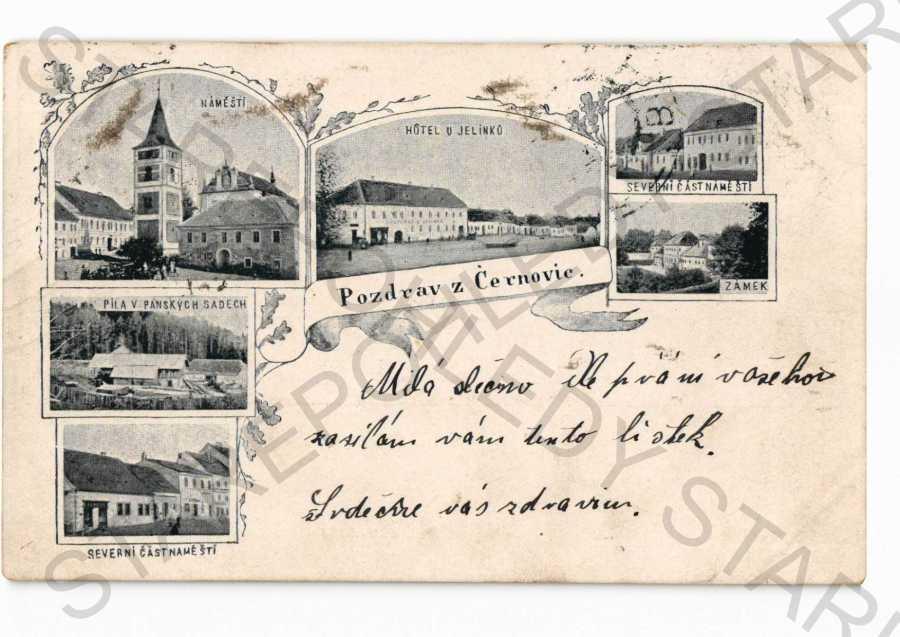 NÁMĚSTÍ
HÔTEL U JELÍNKŮ
SEVERNÍ ČÁST NAMĚSTÍ
ZÁMEK
Pozdrav z Černovic.
PILA V PANSKÝCH SADECH
SEVERNÍ ČÁST NAMĚSTÍ
Milá slečno dle přání vašeho
zasílám vám tento lístek.
Srdečně vás zdravím.
STARÉ POHLEDY